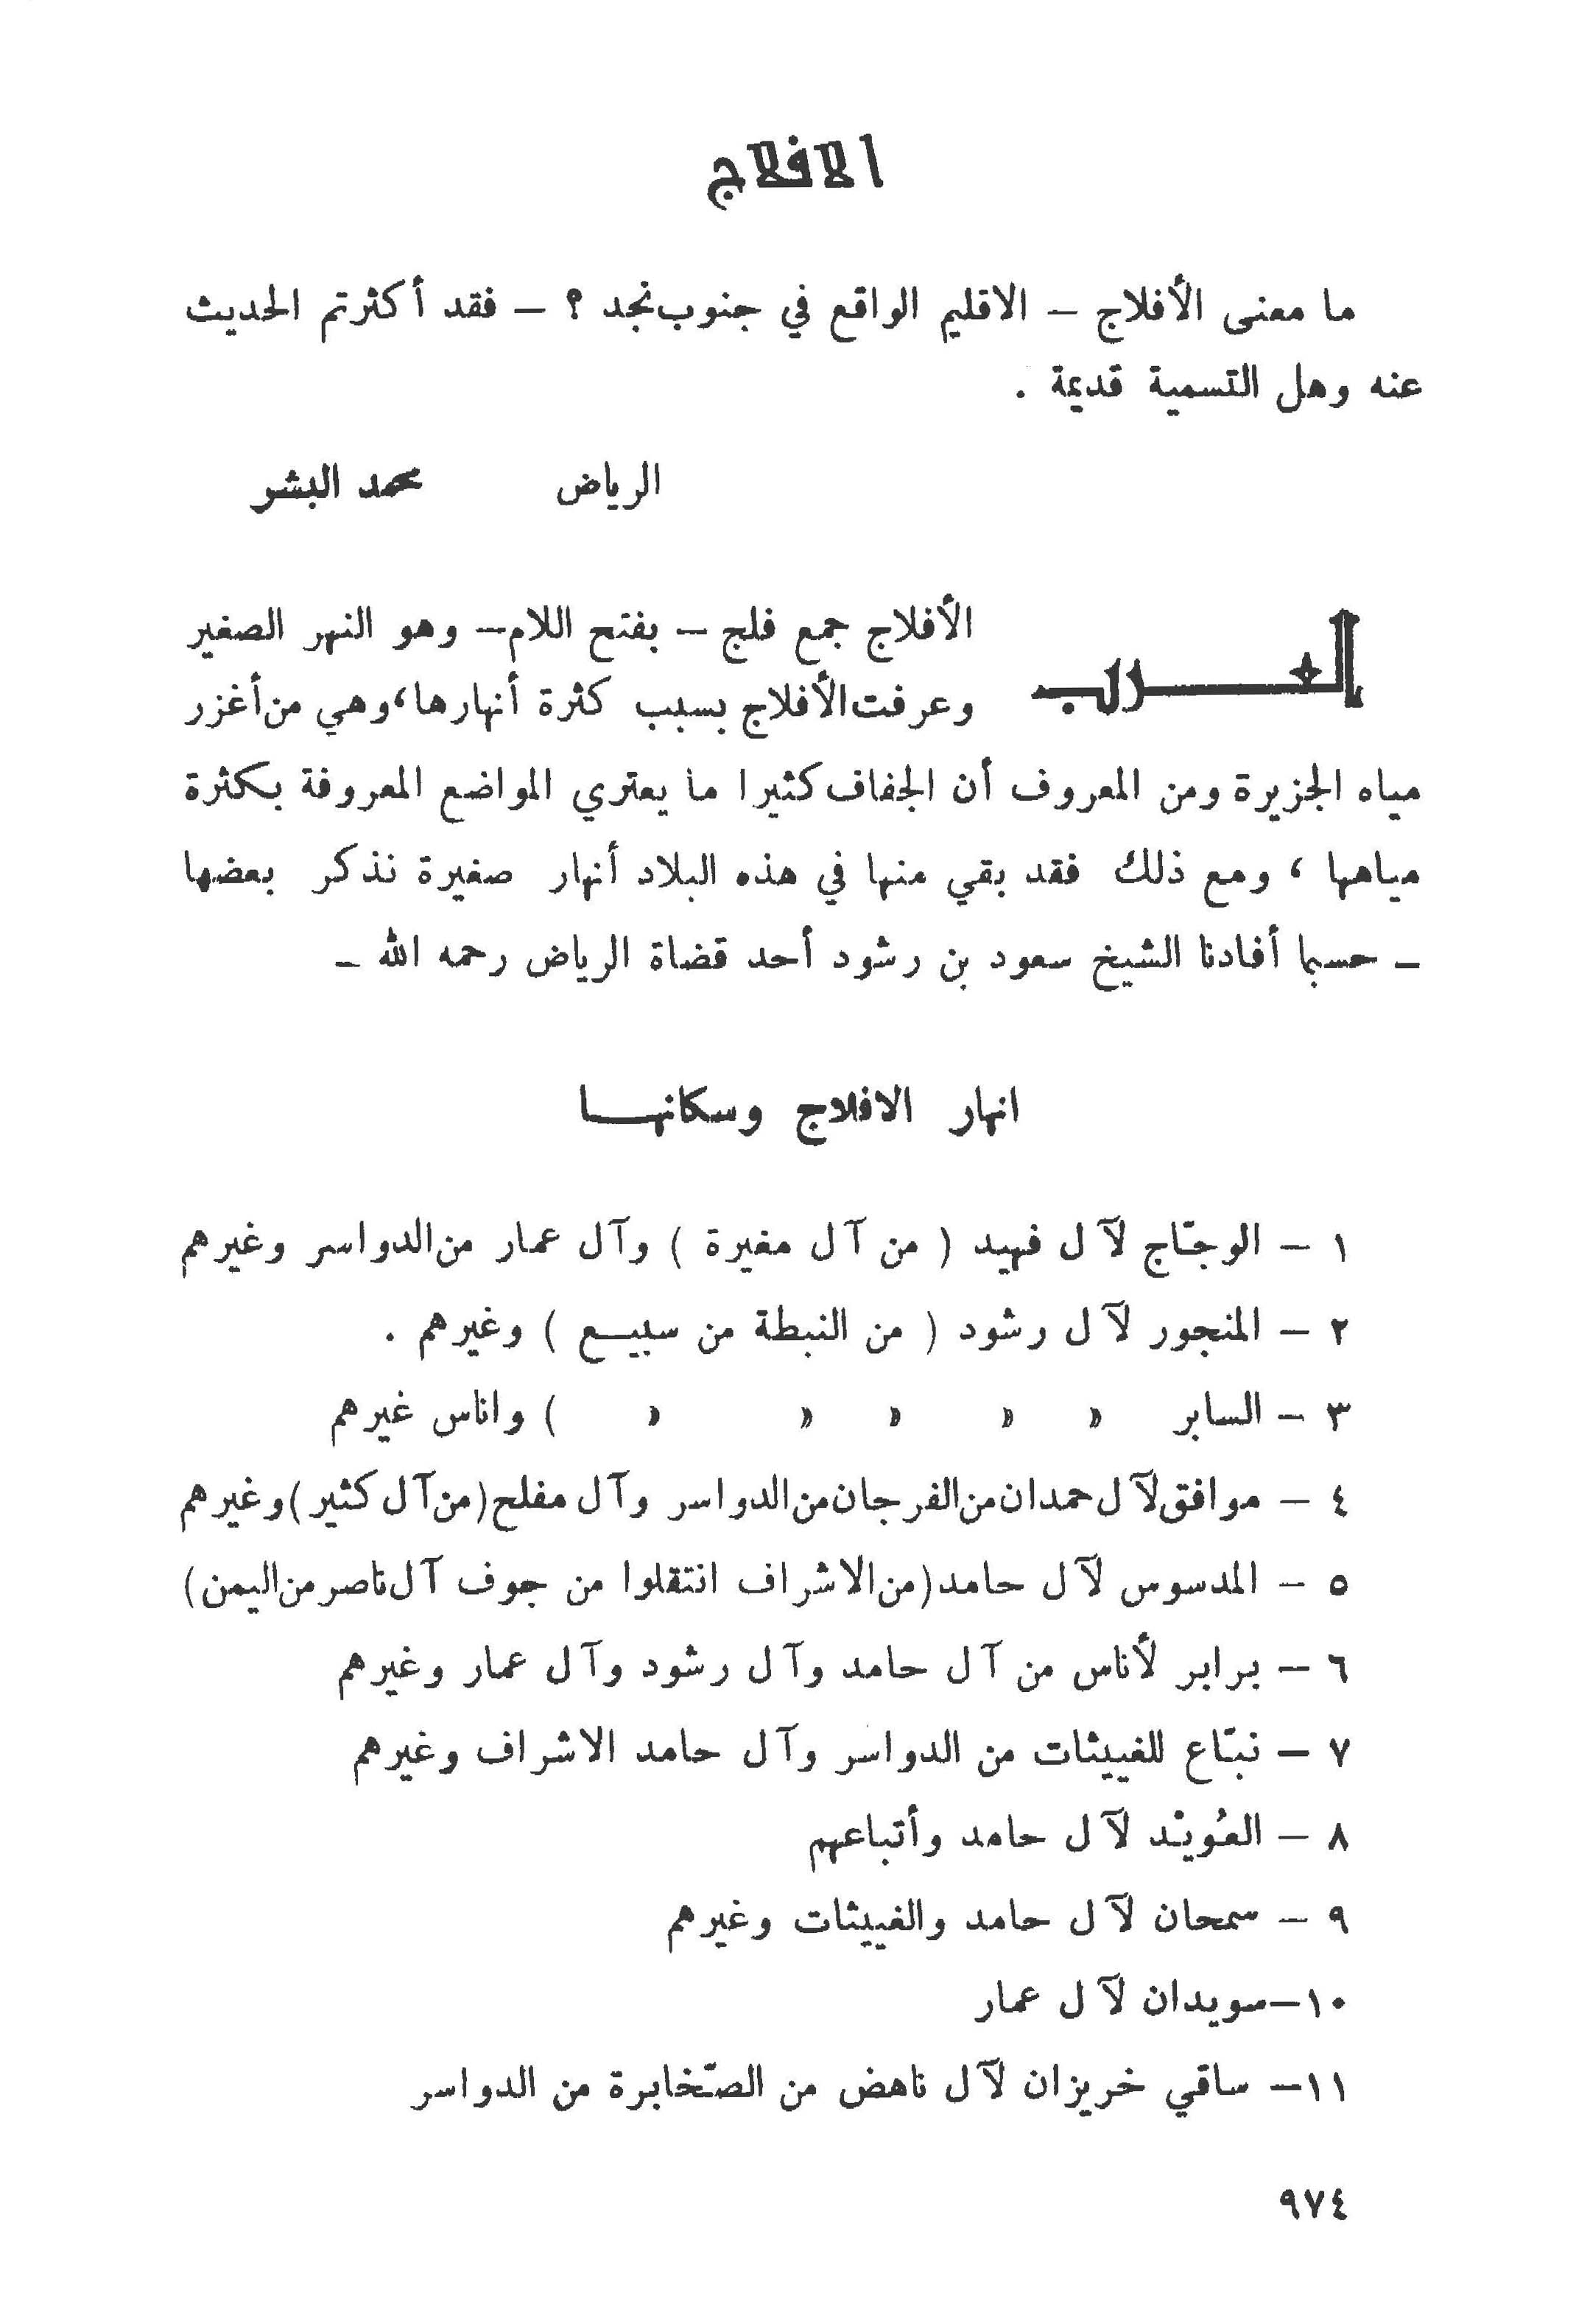 الافلاج
ما معنى الأفلاج – الاقليم الواقع في جنوب نجد ؟ – فقد أكثرتم الحديث
عنه وهل التسمية قديمة .
الرياض محمد البشر
العرب
الأفلاج جمع فلج – بفتح اللام – وهو النهر الصغير
وعرفت الأفلاج بسبب كثرة أنهارها ، وهي من أغزر
مياه الجزيرة ومن المعروف أن الجفاف كثيرا ما يعتري المواضع المعروفة بكثرة
مياهها ، ومع ذلك فقد بقي منها في هذه البلاد أنهار صغيرة نذكر بعضها
– حسبما أفادنا الشيخ سعود بن رشود أحد قضاة الرياض رحمه الله –
انهار الافلاج وسكانهــا
١ – الوجّاج لآل فهيد ( من آل مغيرة ) وآل عمار من الدواسر وغيرهم
٢ – المنجور لآل رشود ( من النبطة من سبيـع ) وغيرهم .
٣ – السابر » » » » » ) واناس غيرهم
٤ – موافق لآل حمدان من الفرجان من الدواسر وآل مفلح (من آل كثير) وغيرهم
٥ – المدسوس لآل حامد (من الاشراف انتقلوا من جوف آل ناصر من اليمن)
٦ – برابر لأناس من آل حامد وآل رشود وآل عمار وغيرهم
٧ – نبّاع للغييثات من الدواسر وآل حامد الاشراف وغيرهم
٨ – العُويْند لآل حامد وأتباعهم
٩ – سمحان لآل حامد والغييثات وغيرهم
١٠– سويدان لآل عمار
١١– ساقي خريزان لآل ناهض من الصّخابرة من الدواسر
٩٧٤